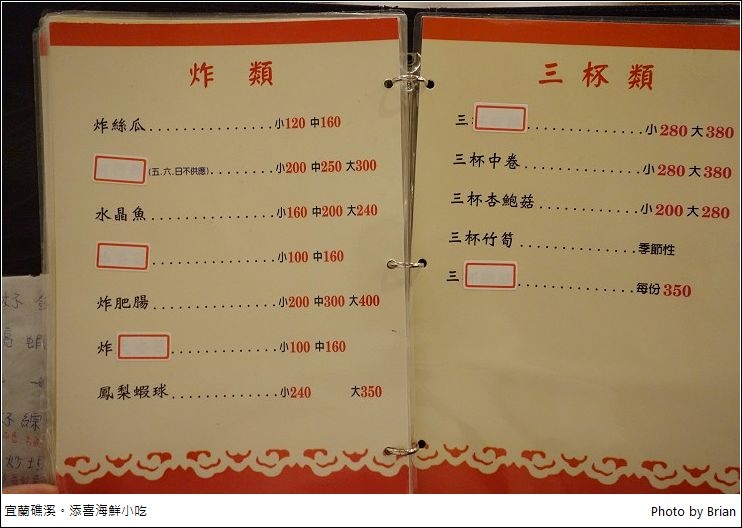 炸類
炸絲瓜..................小120 中160
(五.六.日不供應)..........小200 中250 大300
水晶魚..................小160 中200 大240
..................小100 中160
炸肥腸..................小200 中300 大400
炸..................小100 中160
鳳梨蝦球..................小240 大350
三杯類
三..................小280 大380
三杯中卷..................小280 大380
三杯杏鮑菇..................小200 大280
三杯竹筍..................季節性
三..................每份350
宜蘭礁溪。添喜海鮮小吃
Photo by Brian